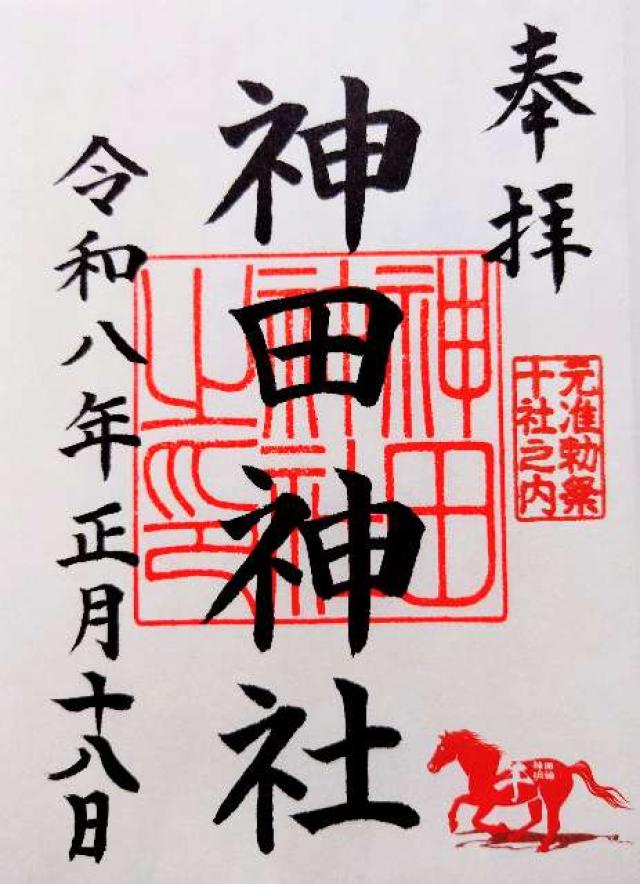 奉拝
元准勅祭
十社之内
神田神社
神田
神社
之印
令和八年正月十八日
午